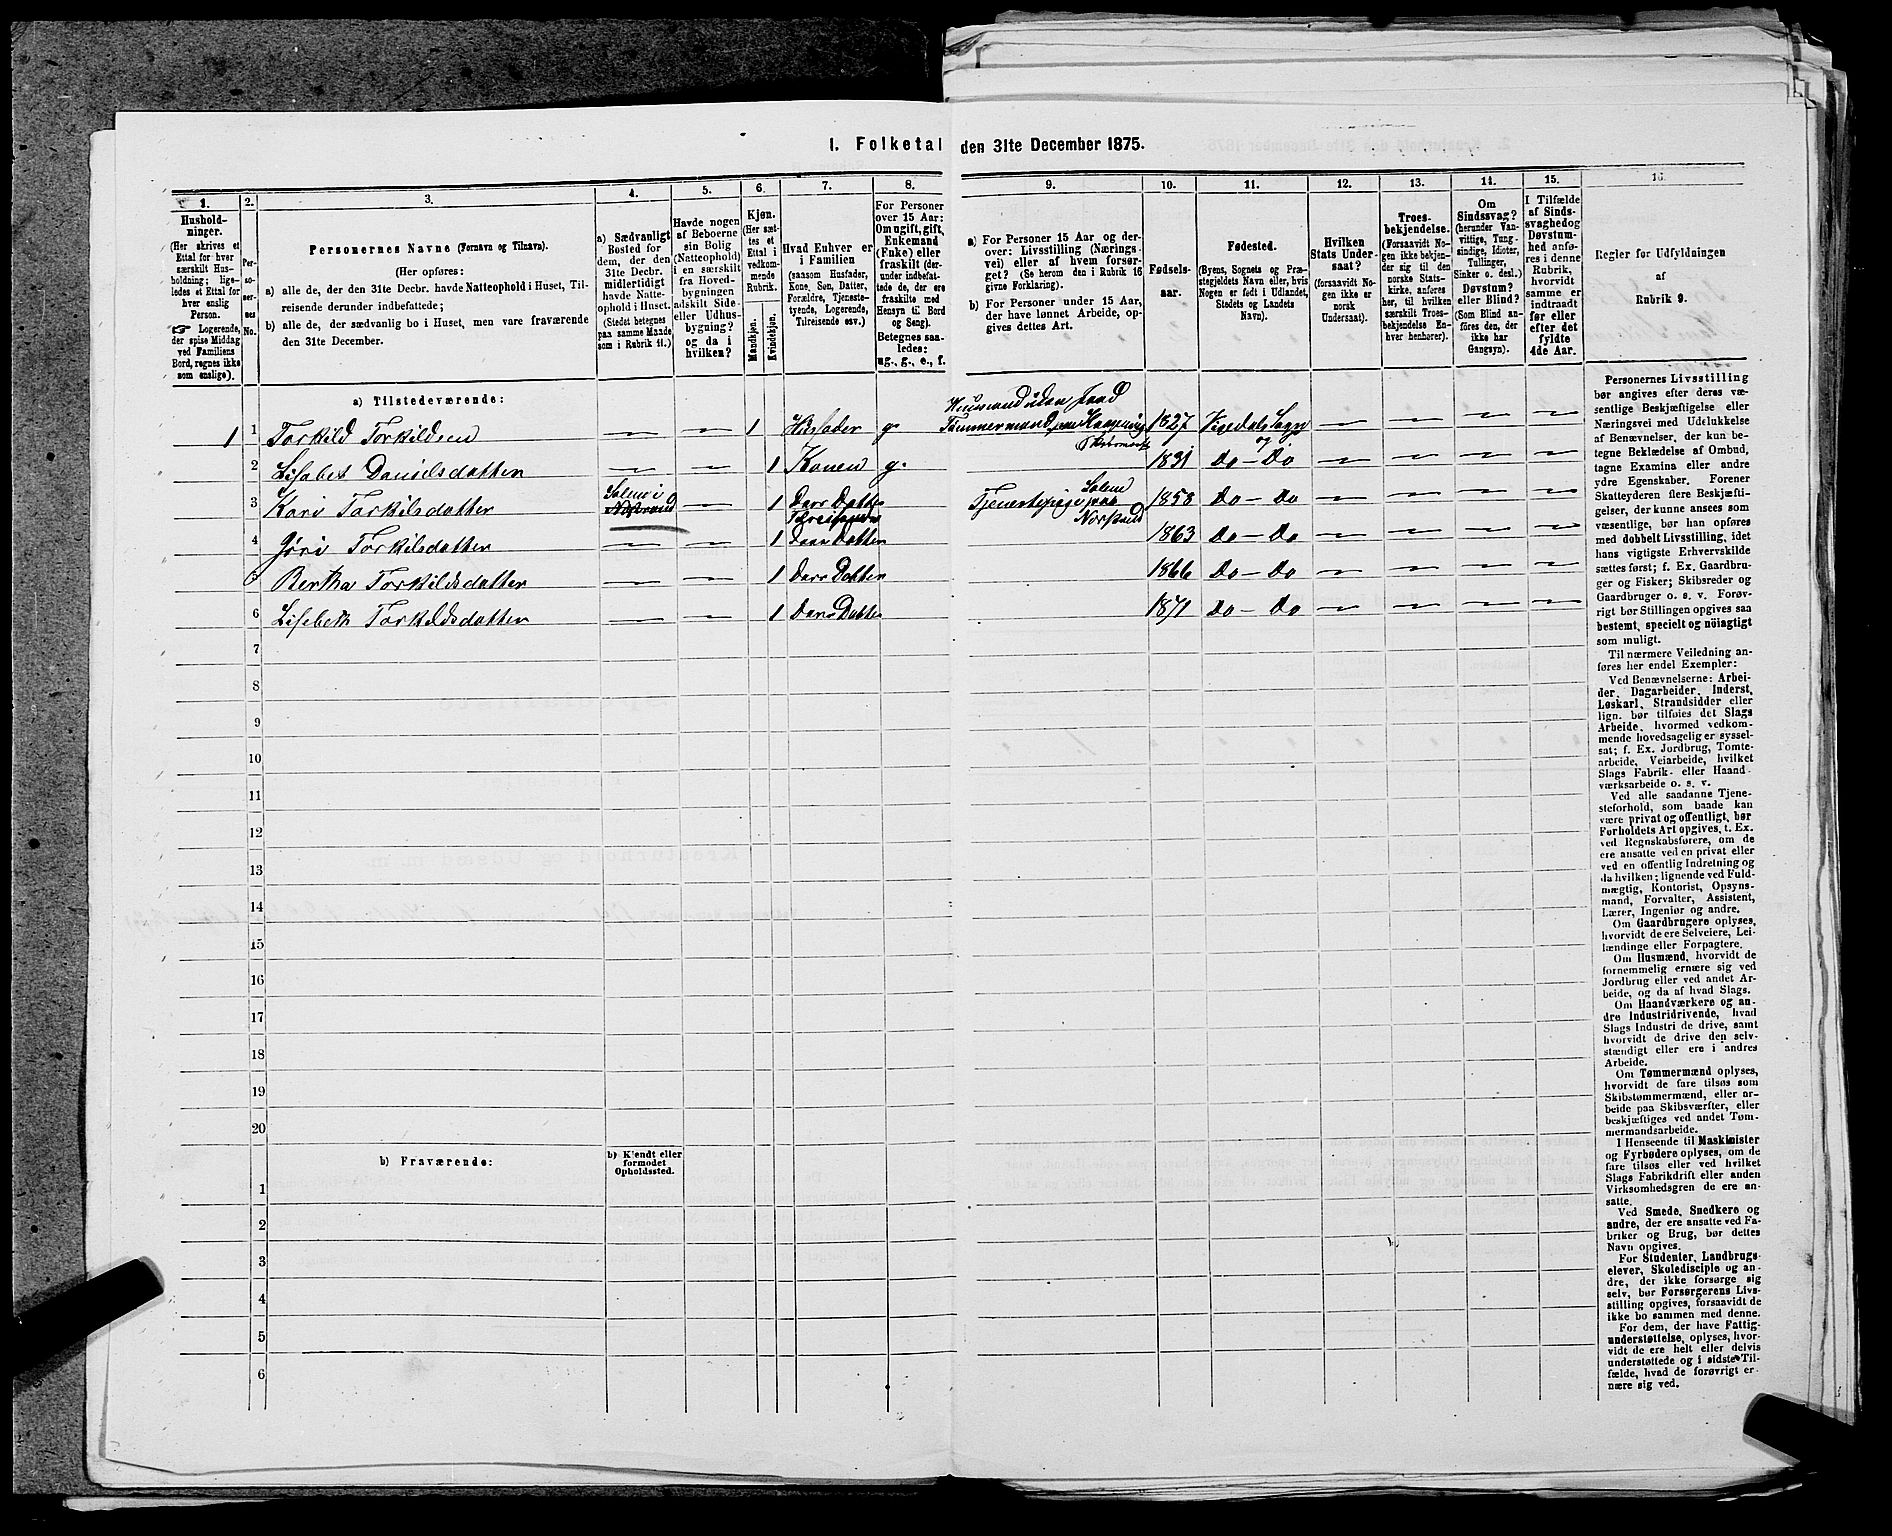 1. Folketal den 31te December 1875.
1. 2. 3. 4. 5. 6. 7. 8. 9. 10. 11. 12. 13. 14. 15. 16.
Hushold-
ninger.
(Her skrives et
Ettal for hver
særskilt Hus-
holdning; lige-
ledes et Ettal for
hver enslig
Person.
☞ Logerende,
der spise Middag
ved Familiens
Bord, regnes ikke
som enslige).
Per-
so-
ner-
nes
No.
Personernes Navne (Fornavn og Tilnavn).
(Her opføres:
a) alle de, der den 31te Decbr. havde Natteophold i Huset, Til-
reisende derunder indbefattede;
b) alle de, der sædvanlig bo i Huset, men vare fraværende
den 31te December.
a) Sædvanligt
Bosted for
dem, der den
31te Decbr.
midlertidigt
havde Natte-
ophold i Huset.
(Stedet betegnes
paa samme Maade
som i Rubrik 11.)
Havde nogen
af Beboerne
sin Bolig
(Natteophold)
i en særskilt
fra Hoved-
bygningen
adskilt Side-
eller Udhus-
bygning?
og da i
hvilken?
Kjøn.
(Her sæt-
tes et
Ettal i
vedkom-
mende
Rubrik.
Mandkjøn.
Kvindekjøn.
Hvad Enhver er
i Familien
(saasom Husfader,
Kone, Søn, Datter,
Forældre, Tjeneste-
tyende, Logerende,
Tilreisende osv.)
For Personer
over 15 Aar:
Om ugift, gift,
Enkemand
(Enke) eller
fraskilt (der-
under indbefat-
tede de, der ere
fraskilte med
Hensyn til Bord
og Seng).
Betegnes saa-
ledes:
ug., g., e., f.
a) For Personer 15 Aar og der-
over: Livsstilling (Nærings-
vei) eller af hvem forsør-
get? (Se herom den i Rubrik 16
givne Forklaring).
b) For Personer under 15 Aar,
der have lønnet Arbeide, op-
gives dettes Art.
Fødsels-
aar.
Fødested.
(Byens, Sognets og Præ-
stegjeldets Navn eller, hvis
Nogen er født i Udlandet,
Stedets og Landets
Navn).
Hvilken
Stats Under-
saat?
(forsaavidt No-
gen ikke er
norsk
Undersaat).
Troes-
bekjendelse.
(Forsaavidt No-
gen ikke bekjen-
der sig til den
norske Stats-
kirke, anføres
her, til hvilken
særskilt Troes-
bekjendelse En-
hver henhører).
Om
Sindssvag?
(herunder Van-
vittige, Tung-
sindige, Idioter,
Tullinger,
Sinker o. desl.)
Døvstum?
eller Blind?
(Som Blind an-
føres den, der
ikke har
Gangsyn).
I Tilfælde
af Sinds-
svaghed og
Døvstum-
hed anfø-
res i denne
Rubrik,
hvorvidt
samme er
indtraadt
før eller
efter det
fyldte
4de Aar.
Regler for Udfyldningen
af
Rubrik 9.
a) Tilstedeværende:
Huusmand uden Jord
1 1 Torkild Torkildsen — — 1 Husfader g. Tømmermand 1827 Vegedals Sogn — — — —
og
2 Lisabet Danielsdatter — — 1 Konen g. 1831 Do – Do — — — —
3 Kari Torkilsdatter — 1 Ders Datter Tjenestepige paa 1853 Do – Do — — — —
4 Gøri Torkilsdatter — — 1 Ders Datter 1863 Do – Do — — — —
5 Bertha Torkildsdatter — — 1 Ders Datter 1866 Do – Do — — — —
6 Lisebeth Torkildsdatter — — 1 Ders Datter 1871 Do – Do — — — —
7
8
9
10
11
12
13
14
15
16
17
18
19
20
b) Fraværende:
b) Kjendt eller
formodet
Opholdssted.
1
2
3
4
5
6
Personernes Livsstilling
bør angives efter deres væ-
sentlige Beskjæftigelse eller
Næringsvei med Udelukkelse
af Benævnelser, der kun be-
tegne Beklædelse af Ombud,
tagne Examina eller andre
ydre Egenskaber. Forener
Skatteyderen flere Beskjæfti-
gelser, der kunne ansees som
væsentlige, bør han opføres
med dobbelt Livsstilling, idet
hans vigtigste Erhvervskilde
sættes først; f. Ex. Gaardbru-
ger og Fisker; Skibsreder og
Gaardbruger o. s. v. Forøv-
rigt bør Stillingen opgives saa
bestemt, specielt og nöiagtigt
som muligt.
Til nærmere Veiledning an-
føres her endel Exempler:
Ved Benævnelserne: Arbei-
der, Dagarbeider, Inderst,
Løskarl, Strandsidder eller
lign. bør tilføies det Slags
Arbeide, hvormed vedkom-
mende hovedsagelig er syssel-
sat; f. Ex. Jordbrug, Tomte-
arbeide, Veiarbeide, hvilket
Slags Fabrik- eller Haand-
værksarbeide o. s. v.
Ved alle saadanne Tjene-
steforhold, som baade kan
være privat og offentligt, bør
Forholdets Art opgives, t. Ex.
ved Regnskabsførere, om de
ere ansatte ved en privat eller
ved en offentlig Indretning og
da hvilken; lignende ved Fuld-
mægtig, Kontorist, Opsyns-
mand, Forvalter, Assistent,
Lærer, Ingeniør og andre.
Om Gaardbrugere oplyses,
hvorvidt de ere Selveiere, Lei-
lændinge eller Forpagtere.
Om Husmænd, hvorvidt de
fornemmelig ernære sig ved
Jordbrug eller ved andet Ar-
beide, og da af hvad Slags.
Om Haandværkere og an-
dre Industridrivende, hvad
Slags Industri de drive, samt
hvorvidt de drive den selv-
stændigt eller ere i andres
Arbeide.
Om Tømmermænd oplyses,
hvorvidt de fare tilsøs som
Skibstømmermænd, eller ar-
beide paa Skibsværfter, eller
beskjæftiges ved andet Tøm-
mermandsarbeide.
I Henseende til Maskinister
og Fyrbødere oplyses, om de
fare tilsøs eller ved hvilket
Slags Fabrikdrift eller anden
Virksomhedsgren de ere an-
satte.
Ved Smede, Snedkere og
andre, der ere ansatte ved Fa-
briker og Brug, bør dettes
Navn opgives.
For Studenter, Landbrugs-
elever, Skoledisciple og an-
dre, der ikke forsørge sig
selv, bør Forsørgerens Livs-
stilling opgives, forsaavidt de
ikke bo sammen med denne.
For dem, der have Fattig-
understøttelse, oplyses, hvor-
vidt de ere helt eller delvis
understøttede og i sidste Til-
fælde, hvad de forøvrigt er-
nære sig ved.